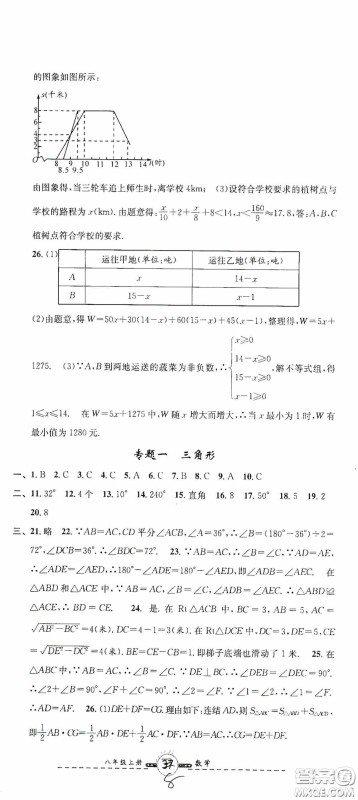 的图象如图所示：
s(千米)
8
4
3
2
O 8 9 10 11 12 13 14 t(时)
8.5 9.5
由图象得，当三轮车追上师生时，离学校4km；（3）设符合学校要求的植树点与
学校的路程为x(km)．由题意得：x/10+2+x/8+8<14，x<160/9≈17.8，答：A、B、C
植树点符合学校的要求．
26．(1)
运往甲地(单位：吨) 运往乙地(单位：吨)
A x 14－x
B 15－x x－1
（2）由题意，得W=50x+30(14－x)+60(15－x)+45(x－1)，整理得，W=5x+
1275．（3）∵A，B到两地运送的蔬菜为非负数，∴{x≥0 14－x≥0 15－x≥0 x－1≥0，解不等式组，得
1≤x≤14．在W=5x+1275中，W随x增大而增大，∴当x最小为1时，W有
最小值为1280元．
专题一 三角形
一、1.B 2.C 3.C 4.C 5.B 6.C 7.B 8.C 9.A 10.C
二、11.32° 12.4个 13.10° 14.240° 15.直角 16.8 17.50° 18.5 19.2
20.8
三、21.略 22.∵AB=AC，CD平分∠ACB，∠A=36°，∴∠B=(180°－36°)÷2=
72°，∠DCB=36°．∴∠BDC=72°． 23.∵AB=AC，∴∠B=∠C，∵AD=AE，
∴∠ADE=∠AED，∴180°－∠ADE=180°－∠AED．即∠ADB=∠AEC．在
△ABD和△ACE中，∵AB=AC，∠B=∠C，∠ADB=∠AEC，∴△ABD≌
△ACE，∴BD=CE． 24.是．在Rt△ABC中，BC=3，AB=5，AC=
√AB²－BC²=4(米)，DC=4－1=3(米)．在Rt△DCE中，DC=3，DE=5，CE
=√DE²－DC²=4(米)，BE=CE－CB=1．即梯子底端也滑动了1米． 25.在
△ABC中，∵AB=AC，∴∠B=∠C．∵DE⊥BC，∴∠DEB=∠DEC=90°．
∴∠2+∠F=90°，∠F=∠1，∴∠B+∠1=90°，∵∠C+∠2=90°．∴∠F=∠2．
∴AD=AF． 26.(1)DE+DF=CG．理由如下：连结AD，则S△ABC=S△ABD+S△ACD，
即1/2AB·CG=1/2AB·DE+1/2AC·DF，∵AB=AC，∴CG=DE+DF．
八年级上册 37 数学
8